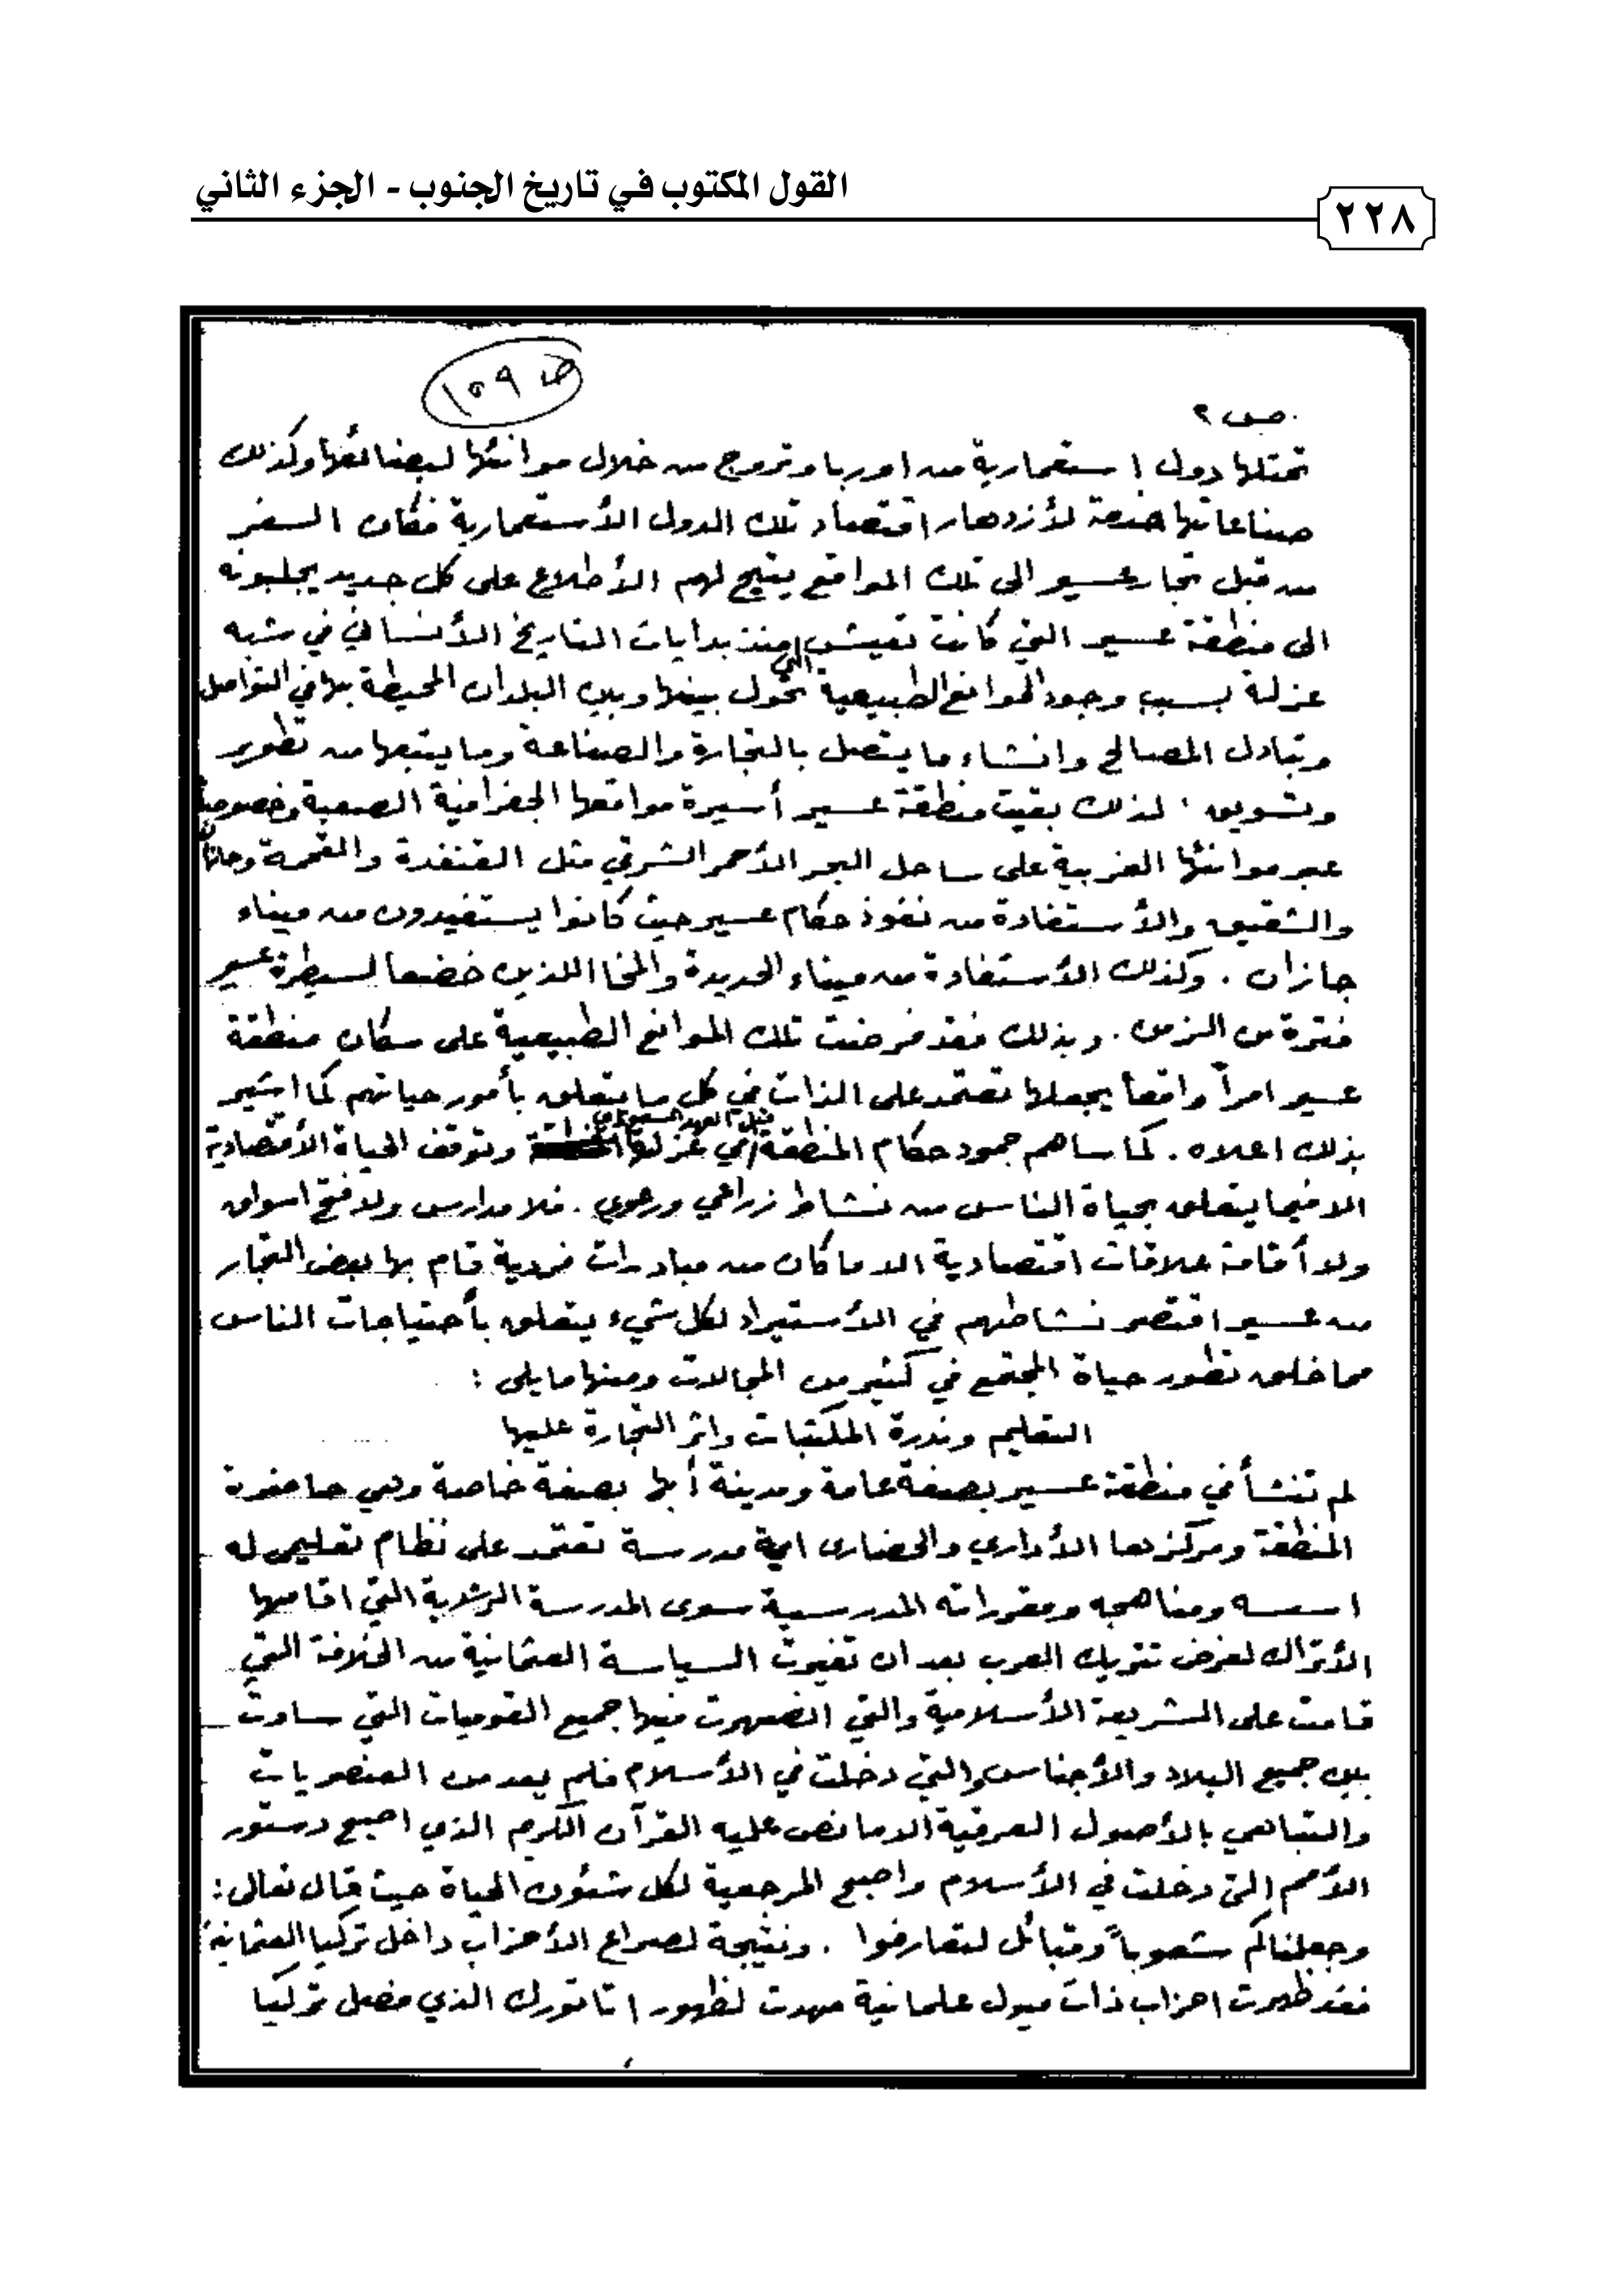 القول المكتوب في تاريخ الجنوب - الجزء الثاني
٢٢٨
ص ١٥٩
ص ٢
تحتلها دول إستعمارية من اوربا وتروج من خلال موانئها لبضائعها وكذلك
صناعاتها خدمة لأزدهار اقتصاد تلك الدول الأستعمارية فكان السفر
من قبل تجار عسير الى تلك المواقع يتيح لهم الأطلاع على كل جديد يجلبونه
الى منطقة عسير التي كانت تعيش منذ بدايات التاريخ الأنساني في شبه
عزلة بسبب وجود الموانع الطبيعية التي تحول بينها وبين البلدان المحيطة بها في التواصل
وتبادل المصالح وانشاء ما يتصل بالتجارة والصناعة وما يتبعها من تطوير
وتسويق . لذلك بقيت منطقة عسير أسيرة مواقعها الجغرافية الصعبة وخصوصاً
عبر موانئها الغربية على ساحل البحر الأحمر الشرقي مثل القنفدة والقحمة
والشقيق والأستفادة من نفوذ حكام عسير حيث كانوا يستفيدون من ميناء
جازان . وكذلك الأستفادة من ميناء الحديدة والمخا اللذين خضعا لسيطرة عسير
فترة من الزمن . وبذلك فقد فرضت تلك الموانع الطبيعية على سكان منطقة
عسير امراً واقعاً يجعلها تعتمد على الذات في كل ما يتعلق بأمور حياتهم كما اشير
بذلك اعلاه . كما ساهم جمود حكام المنطقة قبل العهد السعودي في عزلتها وتوقف الحياة الأقتصادية
الا فيما يتعلق بحياة الناس من نشاط زراعي ورعوي . فلا مدارس ولا فتح اسواق
ولا أقامة علاقات اقتصادية الا ما كان من مبادرات فردية قام بها بعض التجار
من عسير اقتصر نشاطهم في الأستيراد لكل شيء يتعلق بأحتياجات الناس
مما خلق تطور حياة المجتمع في كثير من المجالات ومنها مايلي :
التعليم وندرة المكتبات واثر التجارة عليها
لم تنشأ في منطقة عسير بصفة عامة ومدينة أبها بصفة خاصة وهي حاضرة
المنطقة ومركزها الأداري والحضاري اية مدرسة تعتمد على نظام تعليمي له
اسسه ومناهجه ومقرراته المدرسية سوى المدرسة الرشدية التي اقامها
الأتراك لغرض تتريك العرب بعد ان تغيرت السياسة العثمانية من الخلافة التي
قامت على الشريعة الأسلامية والتي انصهرت فيها جميع القوميات التي ساوت
بين جميع البلاد والأجناس والتي دخلت في الأسلام فلم يعد من العنصريات
والتباهي بالأصول العرقية الا ما نص عليه القرآن الكريم الذي اصبح دستور
الأمم التي دخلت في الأسلام واصبح المرجعية لكل شئون الحياة حيث قال تعالى :
وجعلناكم شعوباً وقبائل لتعارفوا . ونتيجة لصراع الأحزاب داخل تركيا العثمانية
فقد ظهرت احزاب ذات ميول علمانية مهدت لظهور اتاتورك الذي فصل تركيا